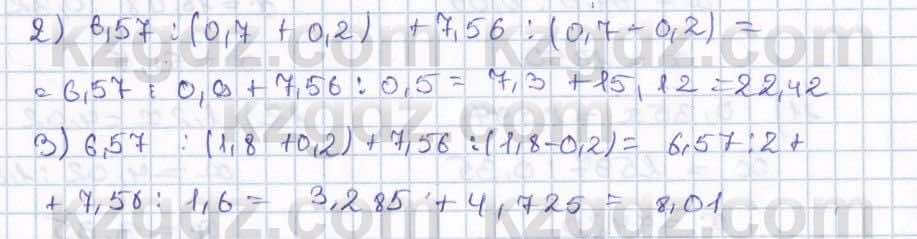 2) 6,57 : (0,7 + 0,2) + 7,56 : (0,7 - 0,2) =
= 6,57 : 0,9 + 7,56 : 0,5 = 7,3 + 15,12 = 22,42
3) 6,57 : (1,8 + 0,2) + 7,56 : (1,8 - 0,2) = 6,57 : 2 +
+ 7,56 : 1,6 = 3,285 + 4,725 = 8,01